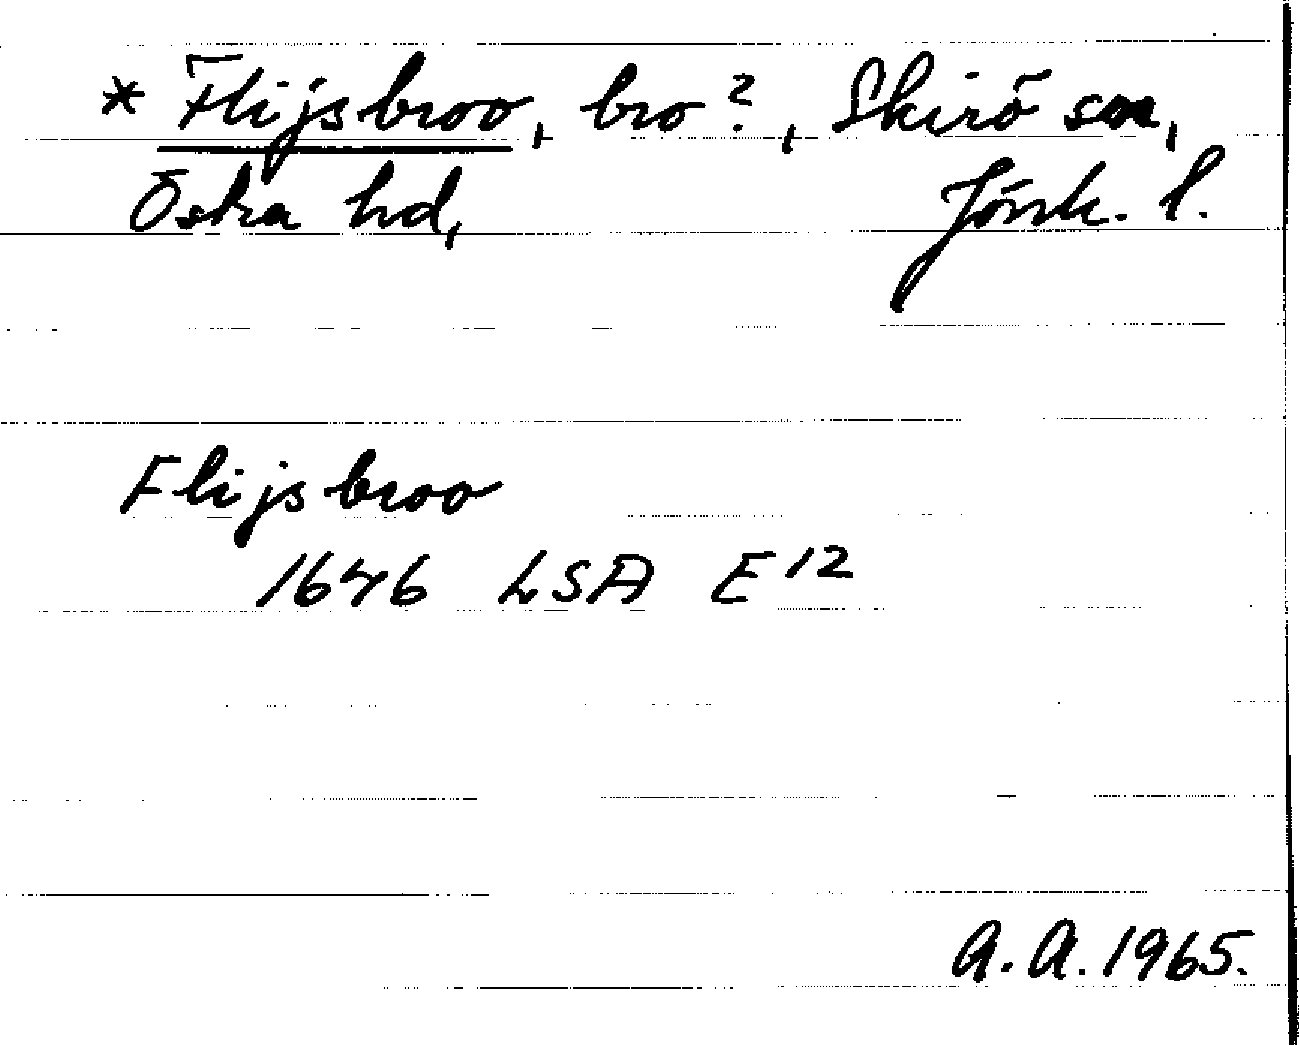 * Flijsbroo, bro?, Skirö sn,
Östra hd, Jönk. l.
Flijsbroo
1646 LSA E12
A.A. 1965.